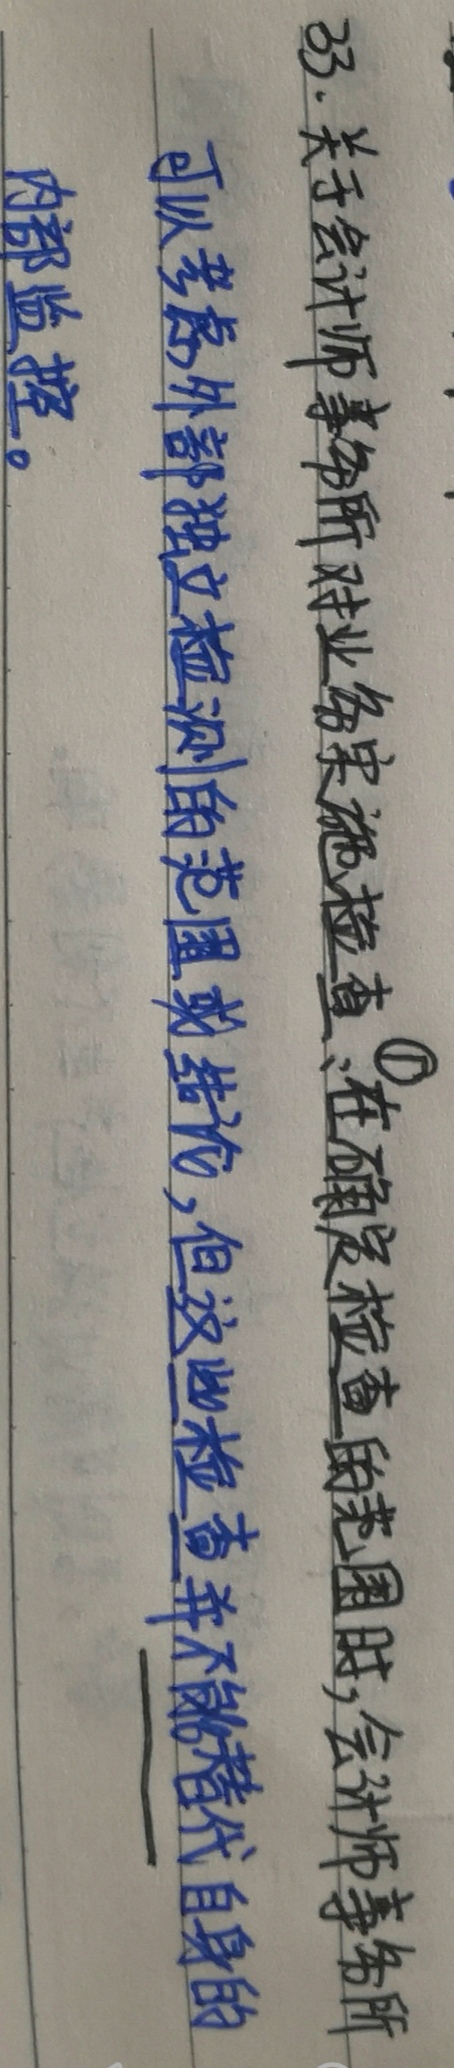 33.关于会计师事务所对业务实施检查、①在确定检查的范围时,会计师事务所
可以考虑外部独立检测的范围或结论,但这些检查并不能替代自身的
内部监控。